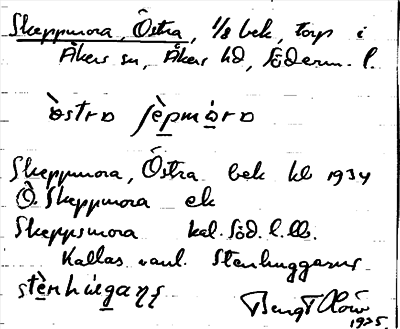 Skeppmora, Östra, 1/8 bek, torp i
Åkers sn, Åkers hd, Söderm. l.
östra
Skeppmora, Östra bek kb 1934
Ö. Skeppmora ek
Skeppsmora kal. Söd. l. lb.
Kallas vanl. Stenhuggars
Bengt
1935.